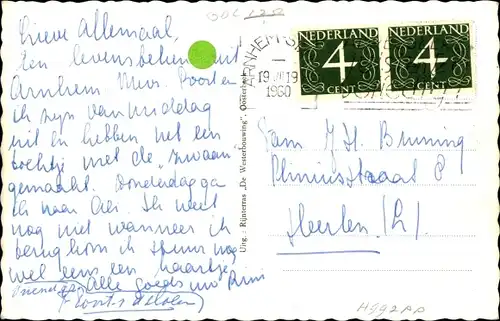 Lieve Allemaal,
Een levensteken uit
Arnhem. Mevr. Poorter
ik zijn vanmiddag
uit en hebben net een
tochtje met de "Zwaan"
gemaakt. Donderdag ga
ik naar Ari. Ik weet
nog niet wanneer ik
terug kom ik stuur nog
wel eens een kaartje
Alle goeds
Uitg.: Rijnterras „De Westerbouwing", Oosterbeek
ARNHEM-ST
19
19
1960
NEDERLAND
4
CENT
NEDERLAND
4
CENT
Fam J. H. Bruning
Pliniusstraat 8
Heerlen (L).